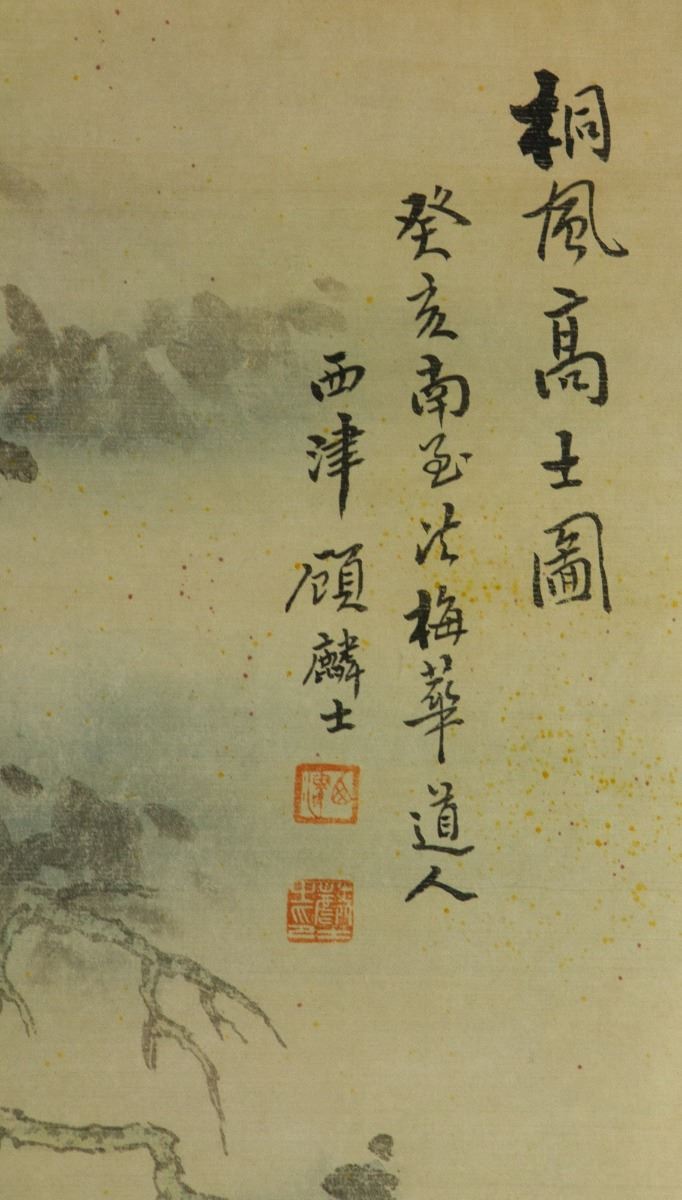 桐風高士圖
癸亥南至法梅華道人
西津顧麟士
西津